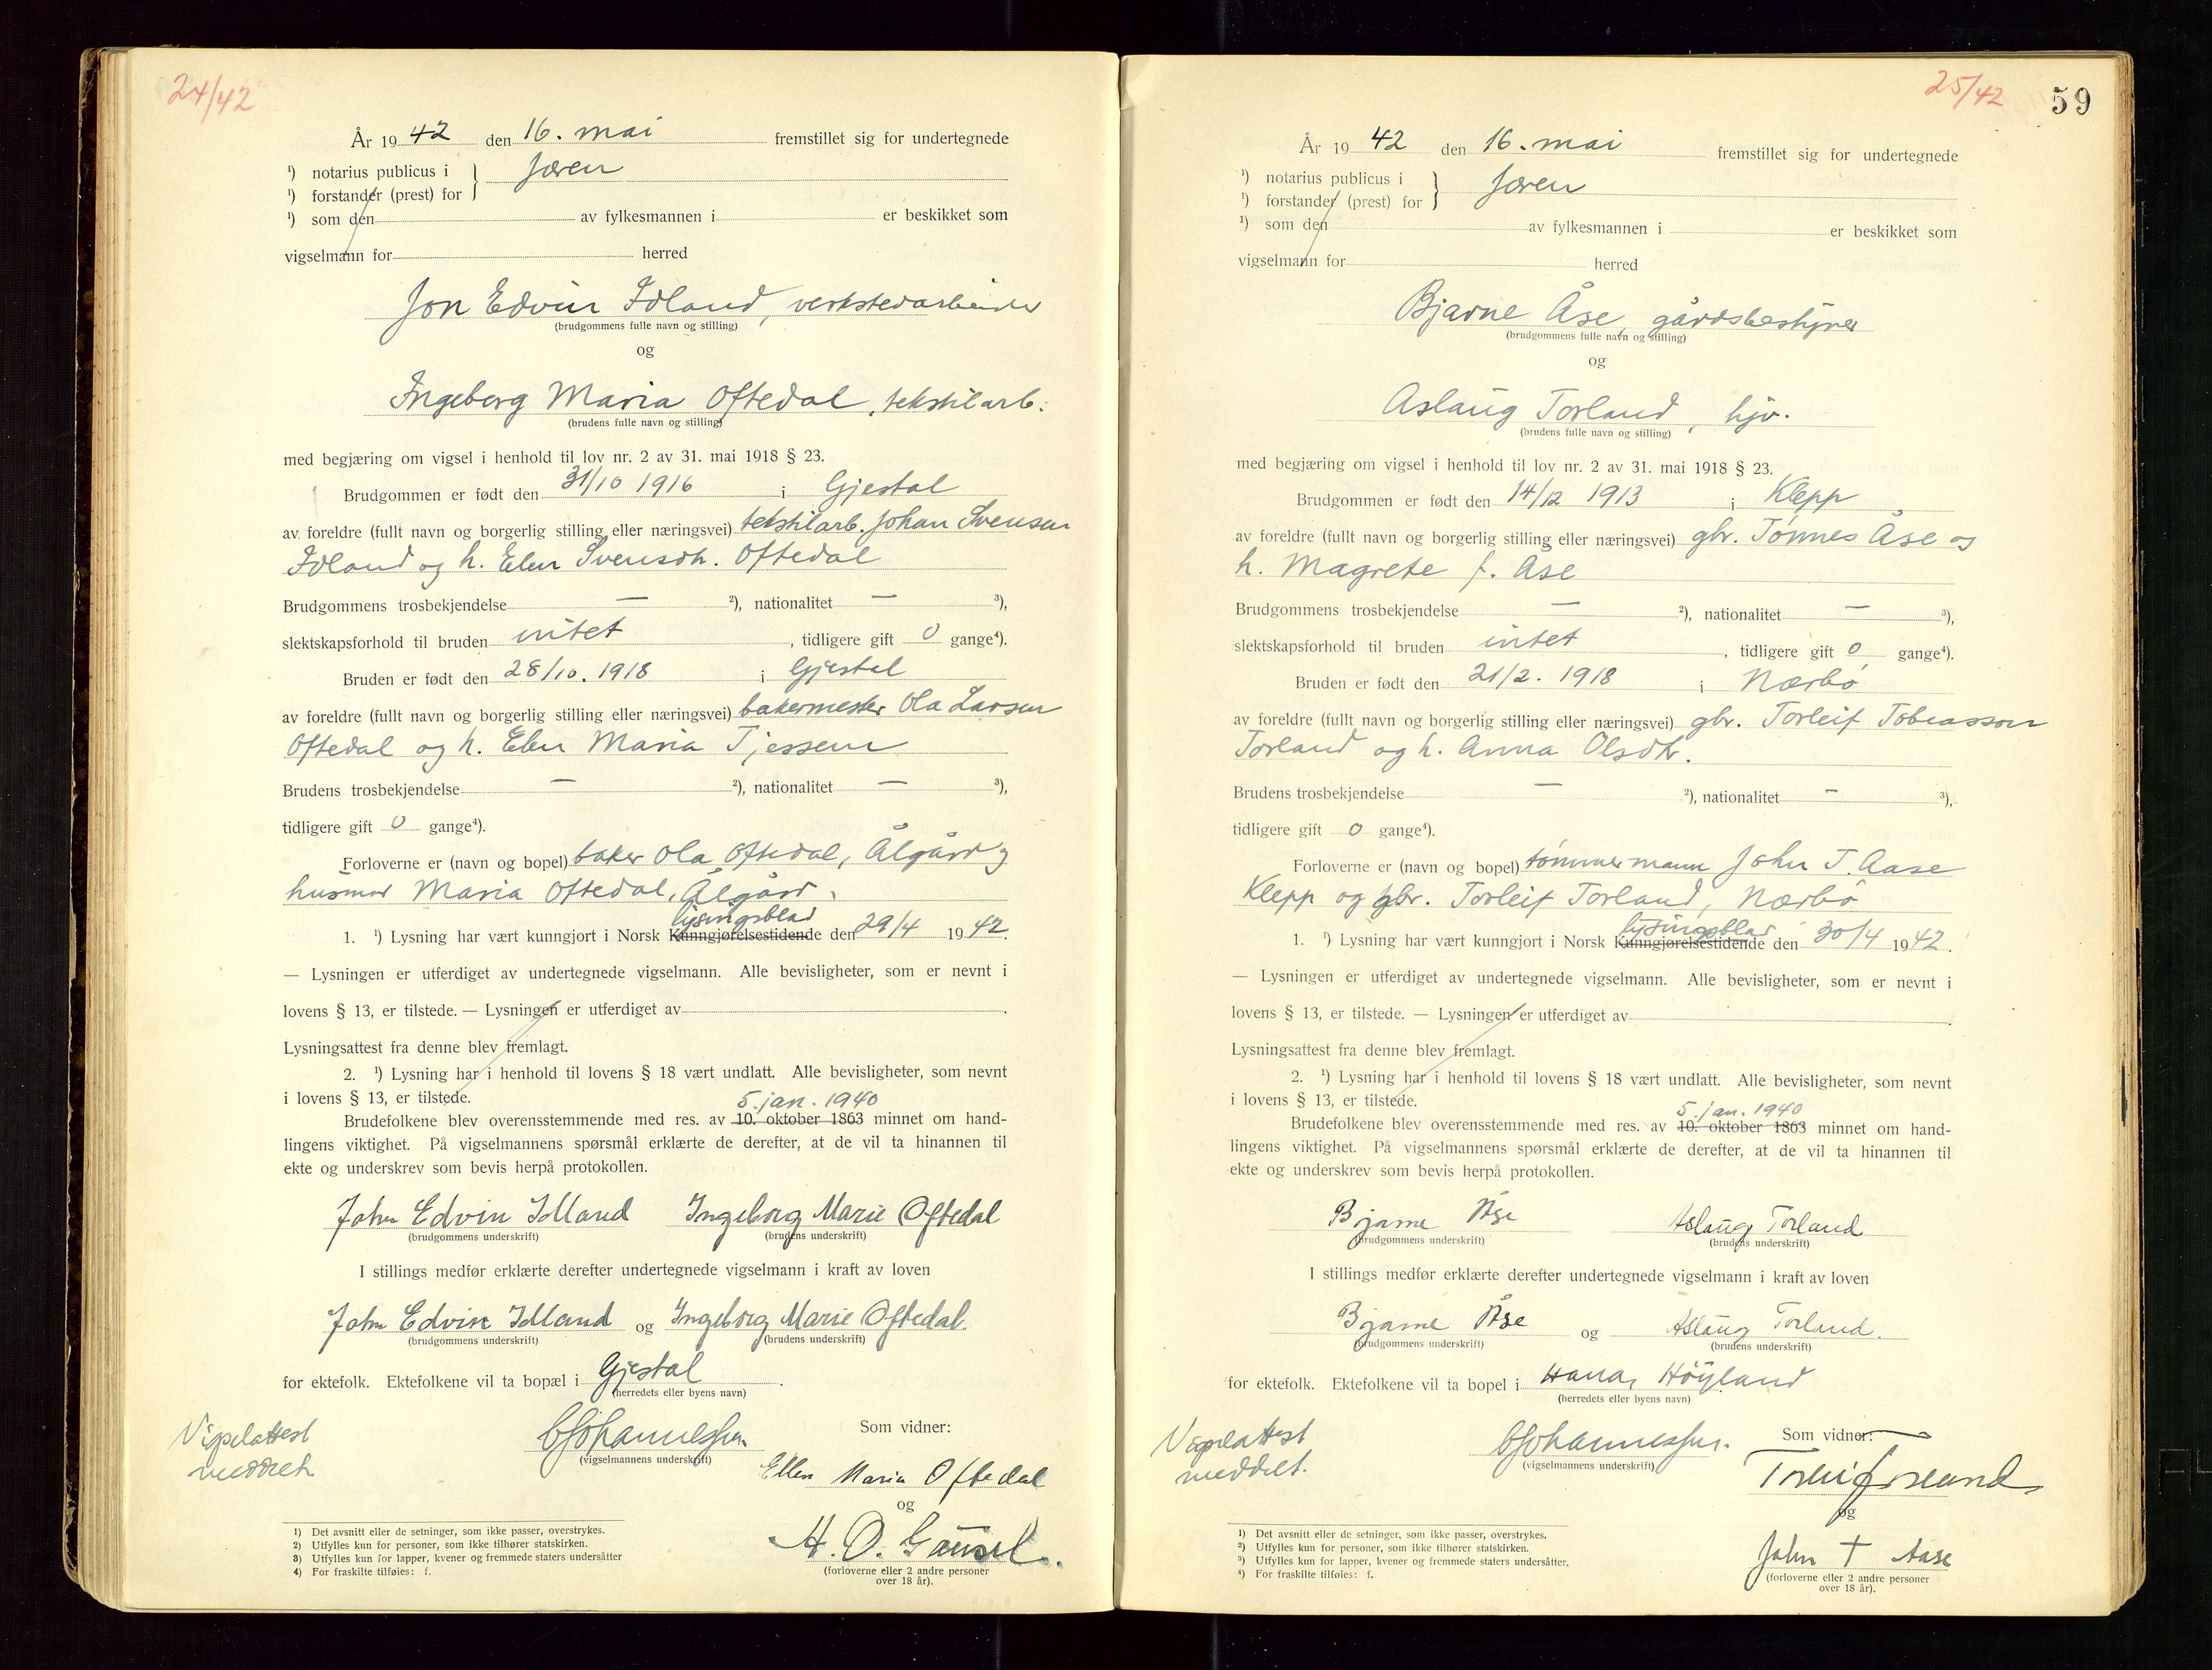 24/42
År 1942 den 16. mai fremstillet sig for undertegnede
¹) notarius publicus i } Jæren
¹) forstander (prest) for
¹) som den av fylkesmannen i er beskikket som
vigselmann for herred
Jon Edvin Idland, verkstedarbeider
(brudgommens fulle navn og stilling)
og
Ingeborg Maria Oftedal, tekstilarb.
(brudens fulle navn og stilling)
med begjæring om vigsel i henhold til lov nr. 2 av 31. mai 1918 § 23.
Brudgommen er født den 31/10 1916 i Gjestal
av foreldre (fullt navn og borgerlig stilling eller næringsvei) tekstilarb. Johan Svensen
Idland og h. Elen Svensdh. Oftedal
Brudgommens trosbekjendelse — ²), nationalitet — ³),
slektskapsforhold til bruden intet, tidligere gift 0 gange⁴).
Bruden er født den 28/10. 1918 i Gjestal
av foreldre (fullt navn og borgerlig stilling eller næringsvei) bakermester Ola Larsen
Oftedal og h. Elen Maria Tjessem
Brudens trosbekjendelse — ²), nationalitet — ³),
tidligere gift 0 gange⁴).
Forloverne er (navn og bopel) baker Ola Oftedal, Ålgård og
husmor Maria Oftedal, Ålgård.
lysingsblad
1. ¹) Lysning har vært kunngjort i Norsk Kunngjørelsestidende den 29/4 1942.
— Lysningen er utferdiget av undertegnede vigselmann. Alle bevisligheter, som er nevnt i
lovens § 13, er tilstede. — Lysningen er utferdiget av .
Lysningsattest fra denne blev fremlagt.
2. ¹) Lysning har i henhold til lovens § 18 vært undlatt. Alle bevisligheter, som nevnt
i lovens § 13, er tilstede.
5. jan. 1940
Brudefolkene blev overensstemmende med res. av 10. oktober 1863 minnet om hand-
lingens viktighet. På vigselmannens spørsmål erklærte de derefter, at de vil ta hinannen til
ekte og underskrev som bevis herpå protokollen.
John Edvin Idland Ingeborg Marie Oftedal
(brudgommens underskrift) (brudens underskrift)
I stillings medfør erklærte derefter undertegnede vigselmann i kraft av loven
John Edvin Idland og Ingeborg Marie Oftedal
(brudgommens underskrift) (brudens underskrift)
for ektefolk. Ektefolkene vil ta bopæl i Gjestal.
(herredets eller byens navn)
Vigselattest
meddelt
CJohannessen
(vigselmannens underskrift)
Som vidner:
Ellen Maria Oftedal
og
A. O. Gausel.
(forloverne eller 2 andre personer
over 18 år).
1) Det avsnitt eller de setninger, som ikke passer, overstrykes.
2) Utfylles kun for personer, som ikke tilhører statskirken.
3) Utfylles kun for lapper, kvener og fremmede staters undersåtter
4) For fraskilte tilføies: f.
25/42
59
År 1942 den 16. mai fremstillet sig for undertegnede
¹) notarius publicus i } Jæren
¹) forstander (prest) for
¹) som den av fylkesmannen i er beskikket som
vigselmann for herred
Bjarne Åse, gårdsbestyrer
(brudgommens fulle navn og stilling)
og
Aslaug Torland, hjv.
(brudens fulle navn og stilling)
med begjæring om vigsel i henhold til lov nr. 2 av 31. mai 1918 § 23.
Brudgommen er født den 14/12 1913 i Klepp
av foreldre (fullt navn og borgerlig stilling eller næringsvei) gbr. Tønnes Åse og
h. Magrete f. Åse
Brudgommens trosbekjendelse — ²), nationalitet — ³),
slektskapsforhold til bruden intet, tidligere gift 0 gange⁴).
Bruden er født den 21/2. 1918 i Nærbø
av foreldre (fullt navn og borgerlig stilling eller næringsvei) gbr. Torleif Tobiasson
Torland og h. Anna Olsdtr.
Brudens trosbekjendelse — ²), nationalitet — ³),
tidligere gift 0 gange⁴).
Forloverne er (navn og bopel) tømmermann John T. Aase
Klepp og gbr. Torleif Torland, Nærbø
lysingsblad
1. ¹) Lysning har vært kunngjort i Norsk Kunngjørelsestidende den 30/4 1942.
— Lysningen er utferdiget av undertegnede vigselmann. Alle bevisligheter, som er nevnt i
lovens § 13, er tilstede. — Lysningen er utferdiget av .
Lysningsattest fra denne blev fremlagt.
2. ¹) Lysning har i henhold til lovens § 18 vært undlatt. Alle bevisligheter, som nevnt
i lovens § 13, er tilstede.
5. jan. 1940
Brudefolkene blev overensstemmende med res. av 10. oktober 1863 minnet om hand-
lingens viktighet. På vigselmannens spørsmål erklærte de derefter, at de vil ta hinannen til
ekte og underskrev som bevis herpå protokollen.
Bjarne Åse Aslaug Torland
(brudgommens underskrift) (brudens underskrift)
I stillings medfør erklærte derefter undertegnede vigselmann i kraft av loven
Bjarne Åse og Aslaug Torland.
(brudgommens underskrift) (brudens underskrift)
for ektefolk. Ektefolkene vil ta bopel i Hana, Höyland
(herredets eller byens navn)
Vigselattest
meddelt.
CJohannessen.
(vigselmannens underskrift)
Som vidner:
Torleif Torland
og
John T Aase
(forloverne eller 2 andre personer
over 18 år).
1) Det avsnitt eller de setninger, som ikke passer, overstrykes.
2) Utfylles kun for personer, som ikke tilhører statskirken.
3) Utfylles kun for lapper, kvener og fremmede staters undersåtter.
4) For fraskilte tilføies: f.